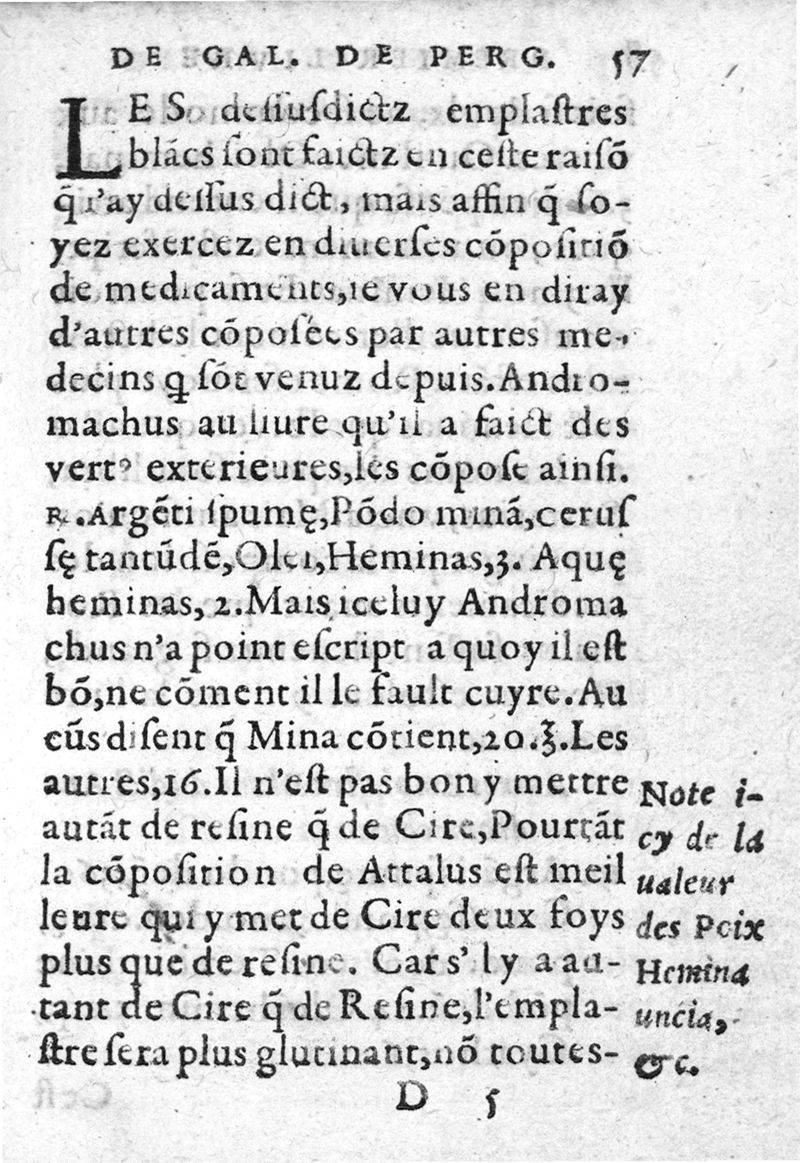 DE GAL. DE PERG. 57
LES deſſuſdictz emplaſtres
blācs ſont faictz en ceſte raiſō
q̄ i'ay deſſus dict, mais affin q̄ ſo-
yez exercez en diuerſes cōpoſitiō
de medicaments, ie vous en diray
d'autres cōpoſées par autres me-
decins ꝗ ſōt venuz depuis. Andro-
machus au liure qu'il a faict des
vertꝰ exterieures, les cōpoſe ainſi.
℞. Argēti ſpumę, Pōdo minā, ceruſ
ſę tantūdē, Olei, Heminas, 3. Aquę
heminas, 2. Mais iceluy Androma
chus n'a point eſcript a quoy il eſt
bō, ne cōment il le fault cuyre. Au
cūs diſent q̄ Mina cōtient, 20. ℥. Les
autres, 16. Il n'eſt pas bon y mettre
autāt de reſine q̄ de Cire, Pourtāt
la cōpoſition de Attalus eſt meil
leure qui y met de Cire deux foys
plus que de reſine. Car s'il y a au-
tant de Cire q̄ de Reſine, l'empla-
ſtre ſera plus glutinant, nō toutes-
Note i-
cy de la
ualeur
des Poix
Hemina
uncia,
&c.
D 5